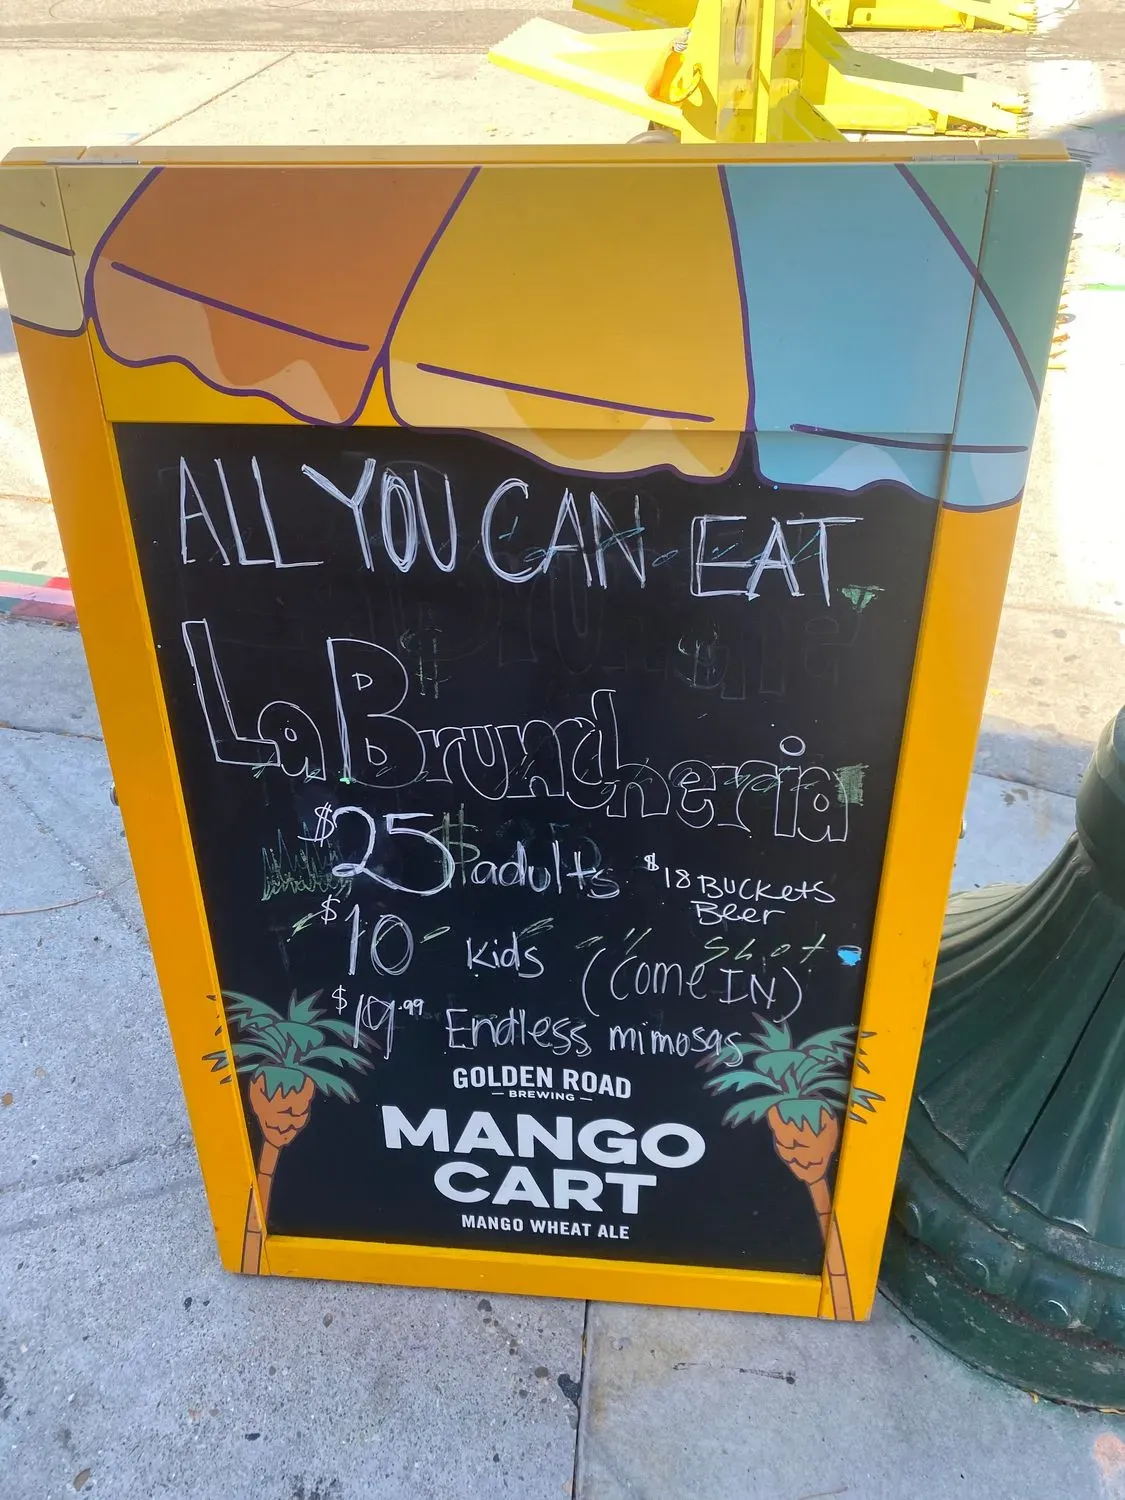 ALL YOU CAN EAT
La Bruncheria
$25 adults
$18 BUCKETS
Beer
$10 Kids
shot
(Come IN)
$19.99 Endless mimosas
GOLDEN ROAD
— BREWING —
MANGO
CART
MANGO WHEAT ALE